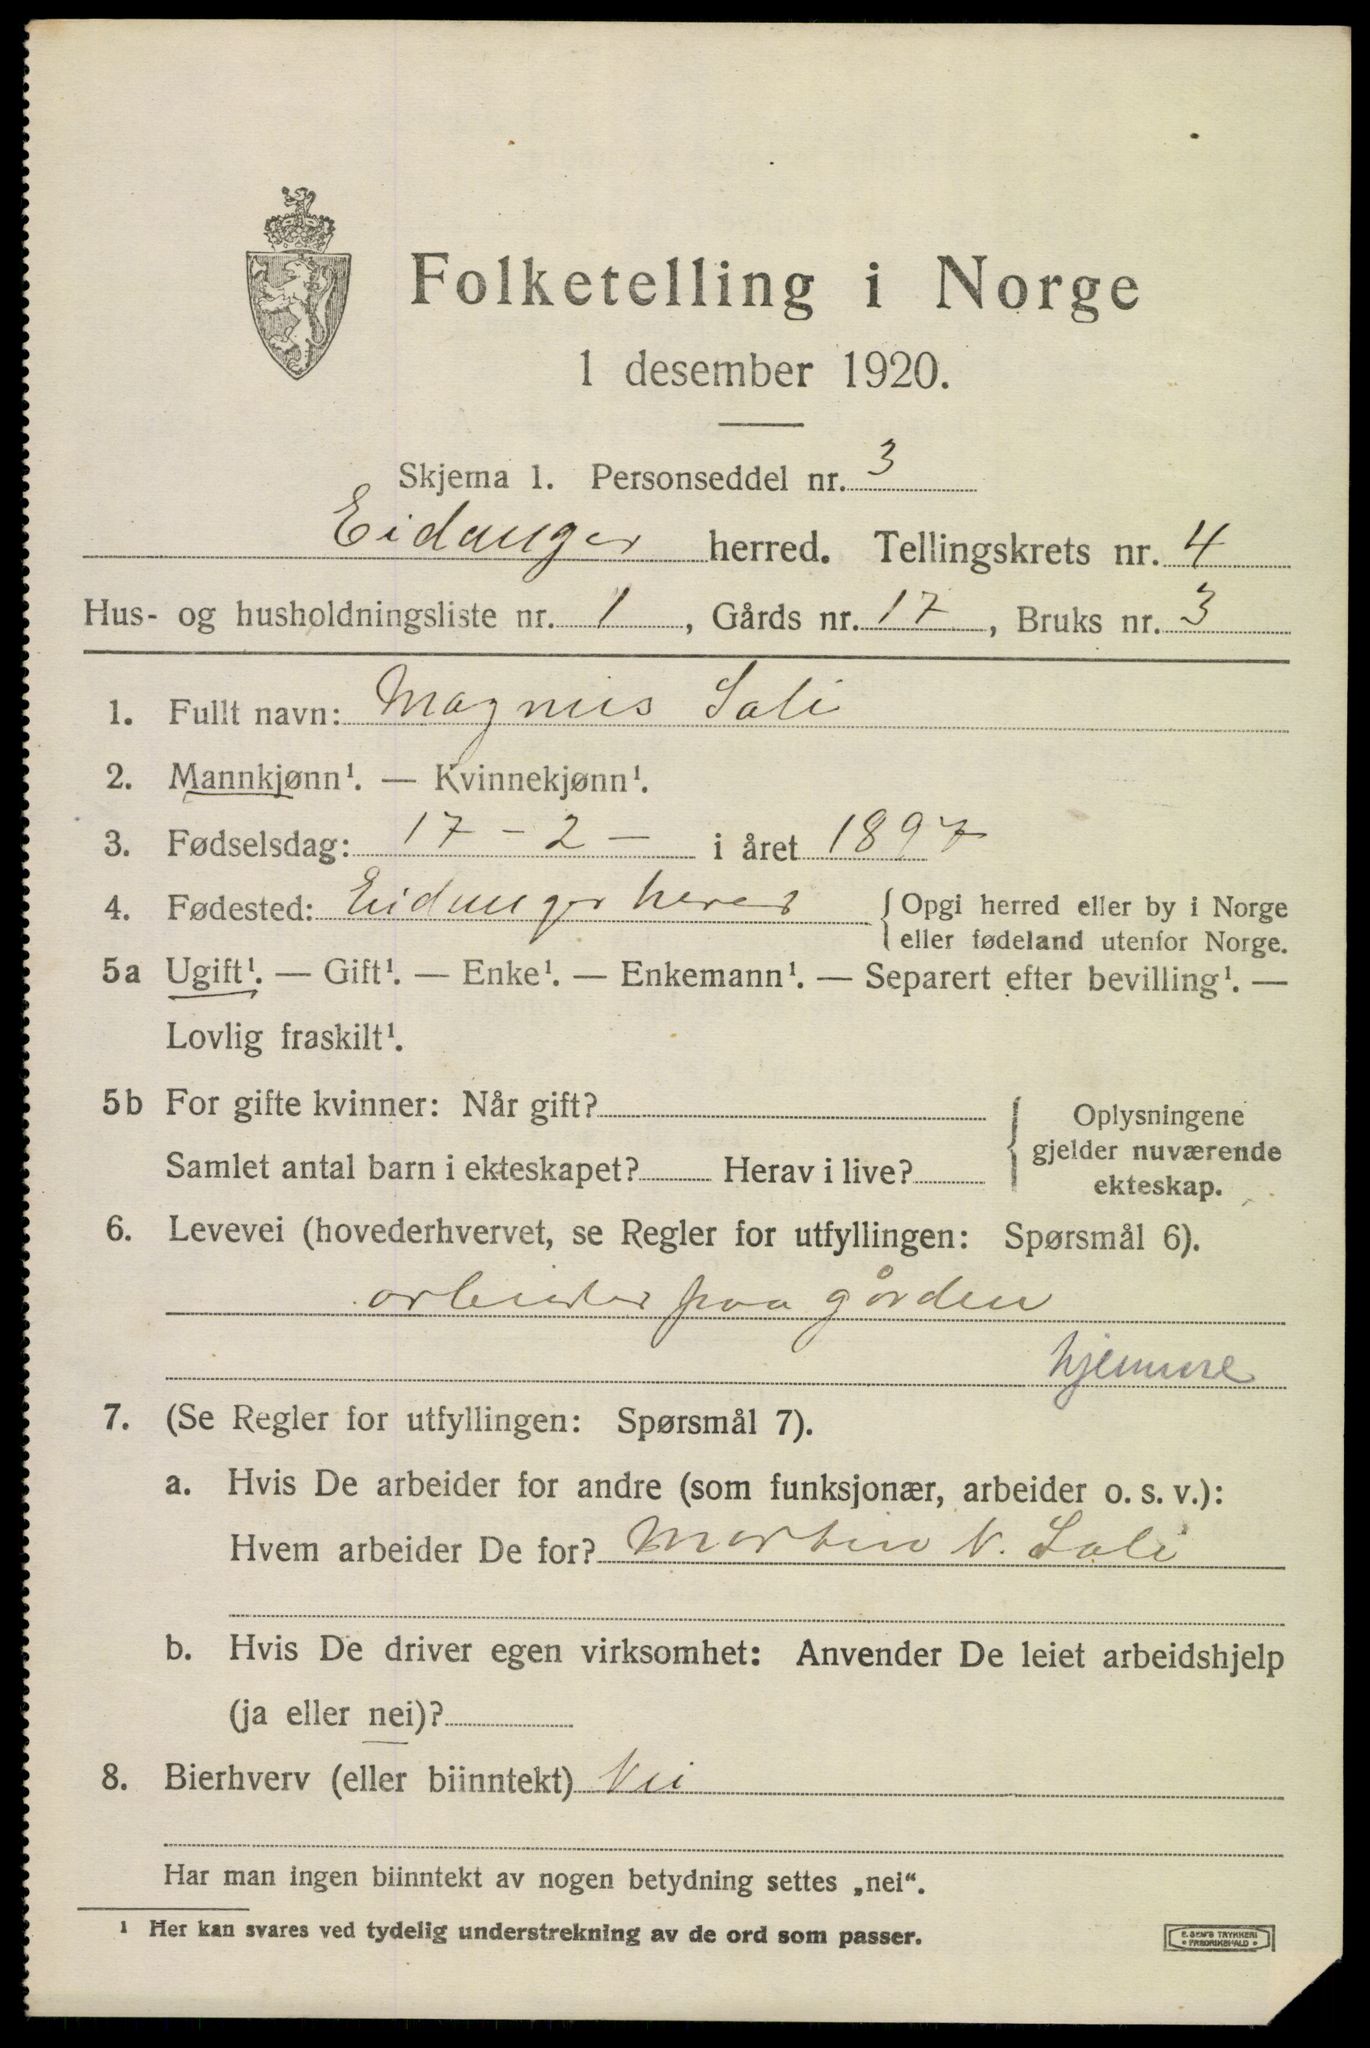 Folketelling i Norge
1 desember 1920.
Skjema 1. Personseddel nr. 3
Eidanger herred. Tellingskrets nr. 4
Hus- og husholdningsliste nr. 1, Gårds nr. 17, Bruks nr. 3
1. Fullt navn: Magnus Sali
2. Mannkjønn¹. — Kvinnekjønn¹.
3. Fødselsdag: 17 - 2 - i året 1897
4. Fødested: Eidanger herred { Opgi herred eller by i Norge
eller fødeland utenfor Norge.
5a Ugift¹. — Gift¹. — Enke¹. — Enkemann¹. — Separert efter bevilling¹. —
Lovlig fraskilt¹.
5b For gifte kvinner: Når gift? { Oplysningene
gjelder nuværende
Samlet antal barn i ekteskapet? Herav i live?
ekteskap.
6. Levevei (hovederhvervet, se Regler for utfyllingen: Spørsmål 6).
arbeider paa gården
hjemme
7. (Se Regler for utfyllingen: Spørsmål 7).
a. Hvis De arbeider for andre (som funksjonær, arbeider o. s. v.):
Hvem arbeider De for? Martin N. Sali
b. Hvis De driver egen virksomhet: Anvender De leiet arbeidshjelp
(ja eller nei)?
8. Bierhverv (eller biinntekt) Nei
Har man ingen biinntekt av nogen betydning settes „nei“.
¹ Her kan svares ved tydelig understrekning av de ord som passer.
E. SEM'S TRYKKERI
• FREDRIKSHALD •